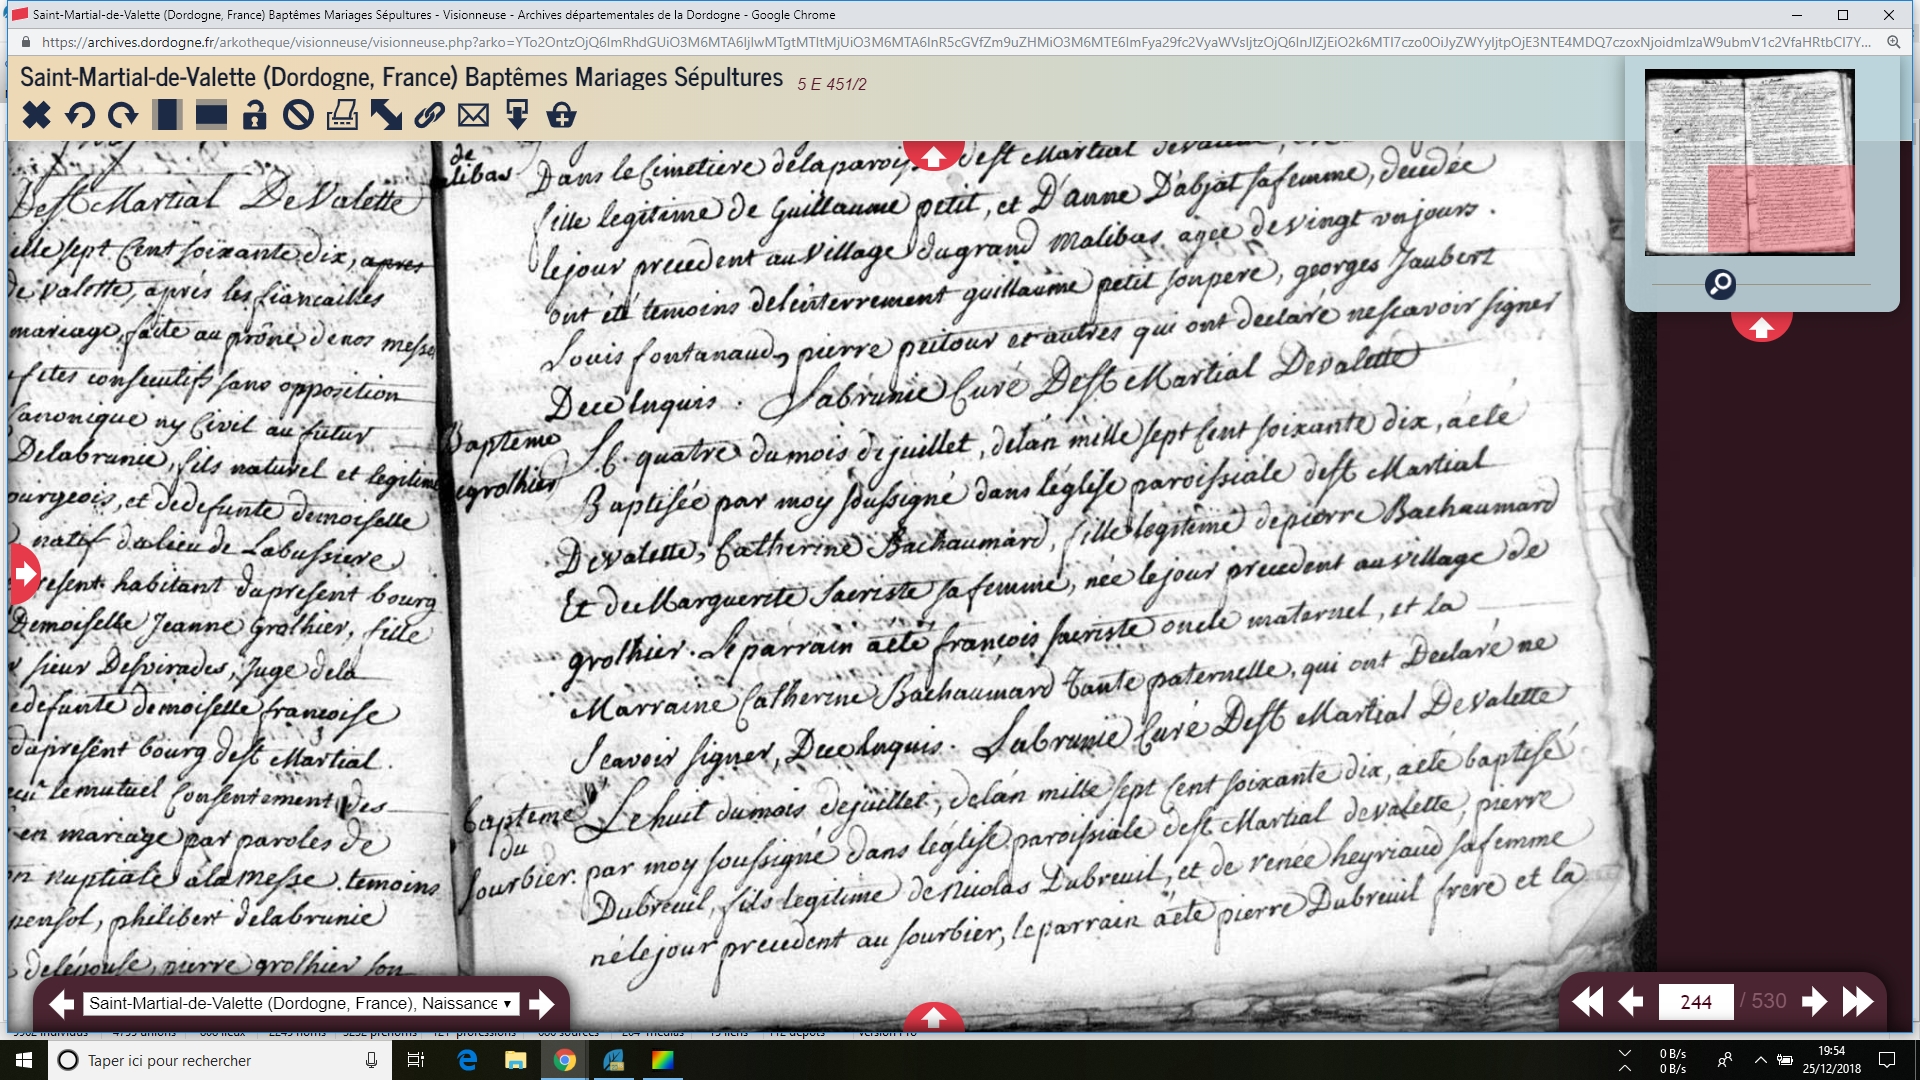 Saint-Martial-de-Valette (Dordogne, France) Baptêmes Mariages Sépultures - Visionneuse - Archives départementales de la Dordogne - Google Chrome
Saint-Martial-de-Valette (Dordogne, France) Baptêmes Mariages Sépultures 5 E 451/2
De St Martial De Valette
sept Cent soixante dix, apres
de valette, aprés les fiancailles
mariage, faite au prône de nos
fetes consecutifs sans opposition
Canonique ny Civil au futur
Delabrunie, fils naturel et legitime
bourgeois, et de defunte demoiselle
natif du lieu de Labussiere
present habitant du present bourg
Demoiselle Jeanne Grolhier, fille
sieur Desvirades, Juge de la
defunte demoiselle françoise
du present bourg de st Martial.
le mutuel Consentement des
en mariage par paroles de
nuptiale a la messe. temoins
philibert delabrunie
de lépouse, pierre grolhier son
de
Dans le Cimetiere de la paroisse de st Martial
fille legitime de Guillaume petit, et D'anne D'abjat sa femme, decedée
le jour precedent au village du grand Malibas agée de vingt un jours.
ont été temoins de l'enterrement guillaume petit son pere, georges Jaubert
Louis fontanaud, pierre peitour et autres qui ont declaré ne scavoir signer
De ce Inquis. Labrunie Curé De st Martial De valette
Bapteme
grolhier
Le quatre du mois de juillet, de lan mille sept Cent soixante dix, a eté
Baptisée par moy soussigné dans l'église paroissiale de st Martial
De valette, Catherine Bachaumard, fille legitime de pierre Bachaumard
Et de Marguerite Sacriste sa femme, née le jour precedent au village de
grolhier. Le parrain a eté françois sacriste oncle maternel, et la
Marraine Catherine Bachaumard Tante paternelle, qui ont Declaré ne
Scavoir signer, De ce Inquis. Labrunie Curé De st Martial De Valette
bapteme
du
sourbier.
Le huit du mois de juillet, de lan mille sept Cent soixante dix, a eté baptisé
par moy soussigné dans leglise paroissiale de st Martial de valette, pierre
Dubreuil, fils legitime de Nicolas Dubreuil, et de renée heyriaud sa femme
né le jour precedent au sourbier, le parrain a eté pierre Dubreuil frere et la
Saint-Martial-de-Valette (Dordogne, France), Naissance
244 / 530
Taper ici pour rechercher
0 B/s
0 B/s
19:54
25/12/2018